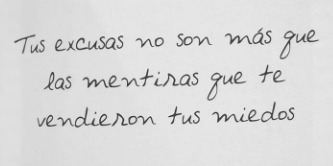 Tus excusas no son más que
las mentiras que te
vendieron tus miedos